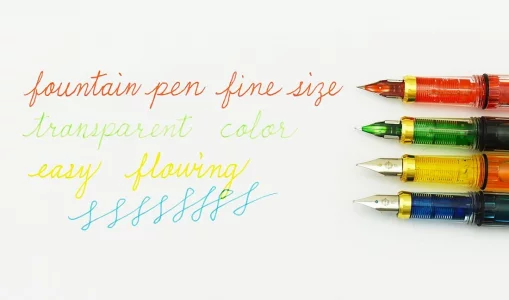 fountain pen fine size
transparent color
easy flowing